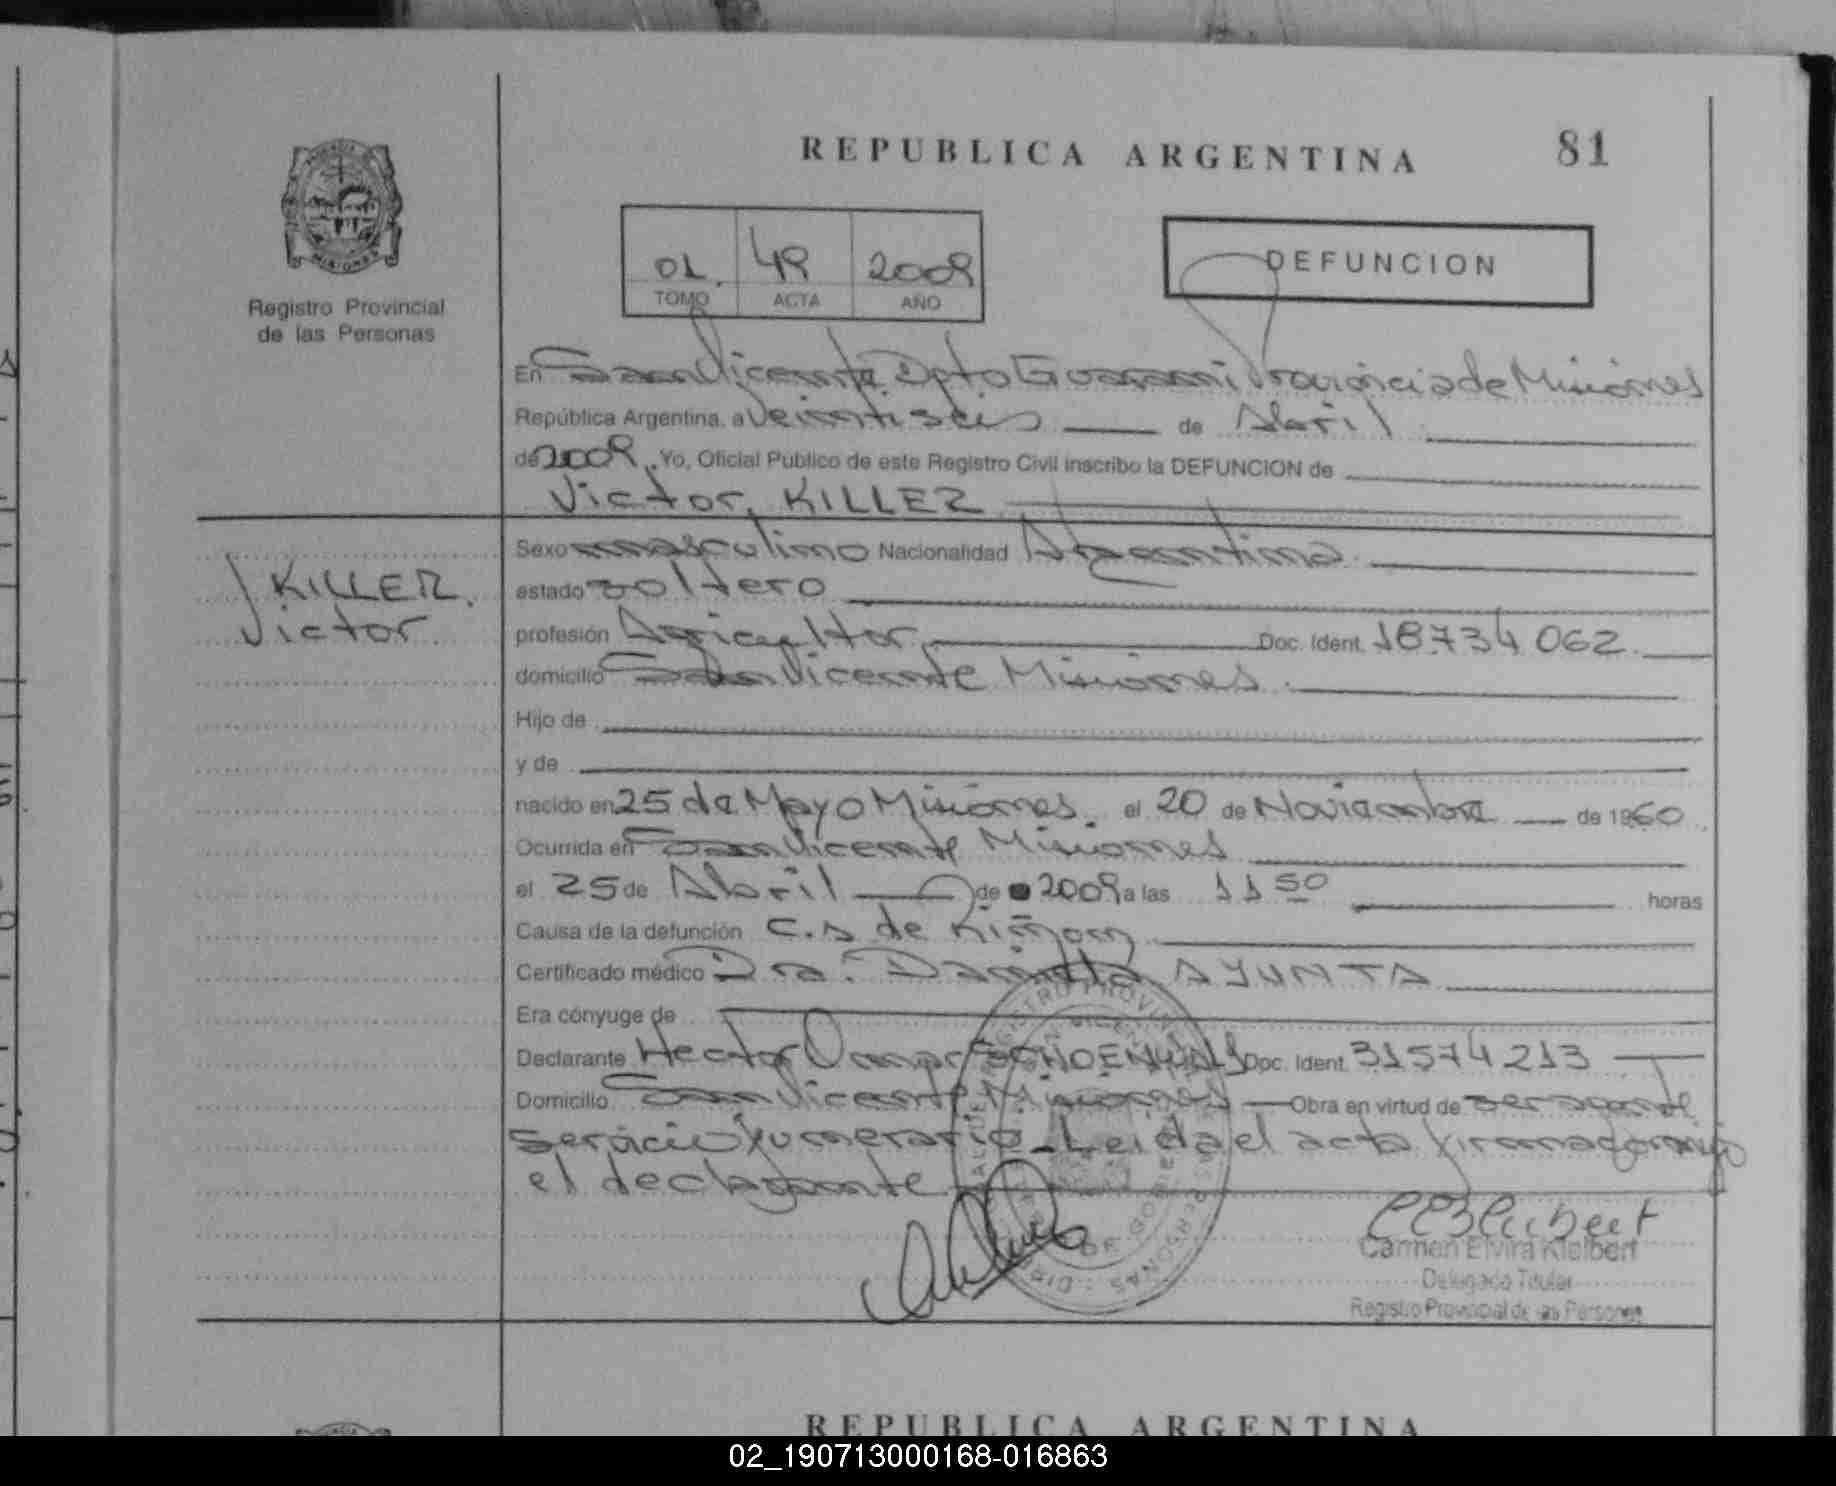 REPUBLICA ARGENTINA 81
Registro Provincial
de las Personas
01 49 2009
TOMO ACTA AÑO
DEFUNCION
En San Vicente Dpto Guarani Provincia de Misiones
República Argentina, a veintiseis de Abril
de 2009, Yo, Oficial Público de este Registro Civil inscribo la DEFUNCION de
Victor KILLER
KILLER
Victor
Sexo masculino Nacionalidad Argentina
estado soltero
profesión Agricultor Doc. Ident. 18.734.062
domicilio San Vicente Misiones
Hijo de
y de
nacido en 25 de Mayo Misiones el 20 de Noviembre de 1960
Ocurrida en San Vicente Misiones
el 25 de Abril de 2009 a las 11 50 horas
Causa de la defunción C.A de Riñon
Certificado médico Dra. Daniela AYUNTA
Era cónyuge de
Declarante Hector Omar Doc. Ident. 31574213
Domicilio San Vicente Misiones Obra en virtud de ser agente
servicio funerario - Leida el acta firma conmigo
el declarante
Carmen Elvira Kleibert
Delegado Titular
Registro Provincial de las Personas
REPUBLICA ARGENTINA
02_190713000168-016863